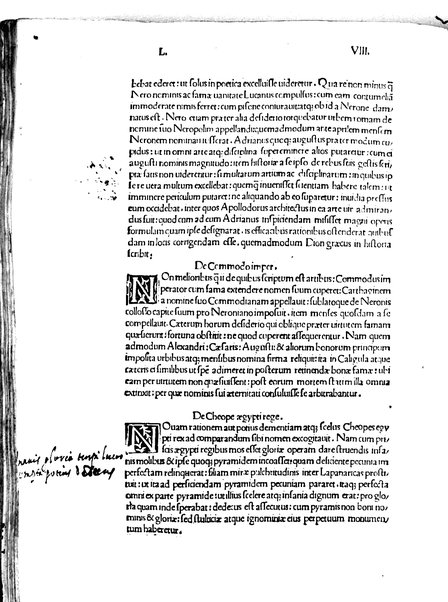 L. VIII.
bebat ederet: ut solus in poetica excelluisse uideretur. Qua re non minus q̃
Nero nominis ac famæ uanitate Lucanus compulsus: cum eam contumeliã
immoderate nimis ferret: cum pisone coniurauit: atq; ob id a Nerone dam/
natus est. Nero etiam præter alia desiderio torquebatur urbem romam de
nomine suo Neropolim appellandi: quemadmodum arte aprilem mensem
Neronem nominari iusserat. Adrianus quoq; augustus præter modum cu/
pidus: ut in omni arte atq; disciplina supereminere alios putaretur: cum ei
augusti nominis magnitudo: item historiæ a se ipso de rebus suis gestis scri/
ptæ satis non uiderentur: si multarum artium ac disciplinarum: in quibus ip
se uera multum excellebat: quemq̃ inuenisset scientiam habere talem: ut
imminere periculum putaret: ne aliquando ab eo superaretur: inuidia pressus
eum occidebat. inter quos Apollodorus architectus in ea arte uir admiran/
dus fuit: quod cum ad eum Adrianus inspiciendam misisset magni operis
formulam quam ipse designarat. is efficacibus rationibus ostenderat quibus/
dam in locis corrigendam esse. quemadmodum Dion græcus in historia
scribit:
De Commodo imper.
NOn melioribus q̃ ii de quibus scriptum est artibus: Commodus im
perator cum fama extendere nomen suum cuperet: Carthaginem
a nomine suo Commodianam appellauit: sublatoque de Neronis
colosso capite suum pro Neroniano imposuit. item menses quosdam a se
compellauit. Cæterum horum desiderio qui oblique præter uirtutem famam
quæsierunt: fortuna obstitit: ne quod cuperent assequerentur. Nam quem
admodum Alexandri: Cæsaris: Augusti: & aliorum bonorum principum
imposita urbibus atq; mensibus nomina firma reliquit: ita in Caligula atque
cæteris eis similibus ut spẽ adimeret in posterum retinendæ bonæ famæ: ubi
eam per uirtutem non quæsiuissent: post eorum mortem statim illa omnia
extinxit: per quæ nominis sui æternitati consuluisse se arbitrabantur.
De Cheope ægypti rege.
NQuam rationem aut potius dementiam atq; scelus Cheopes egy
pti rex ad comparandum sibi nomen excogitauit. Nam cum pri/
scis ægypti regibus mos esset gloriæ operam dare struendis infa
nis molibus & ipse quoq; pyramidem incoasset: quam deficiente pecunia im
perfectam relinqueret: filiam miræ pulchritudinis inter Lupanaricas prosti/
tuit: ut ita ad perficiendam pyramidem pecuniam pararet. itaq; perfecta
omni ex parte pyramide: ut illius scelere atq; insania dignum erat: pro glo/
ria quam inde sperabat: dedecus est assecutus: cum pyramis non boni no/
minis & gloriæ: sed stulticiæ atque ignominiæ eius perpetuum monumen/
tum haberetur.